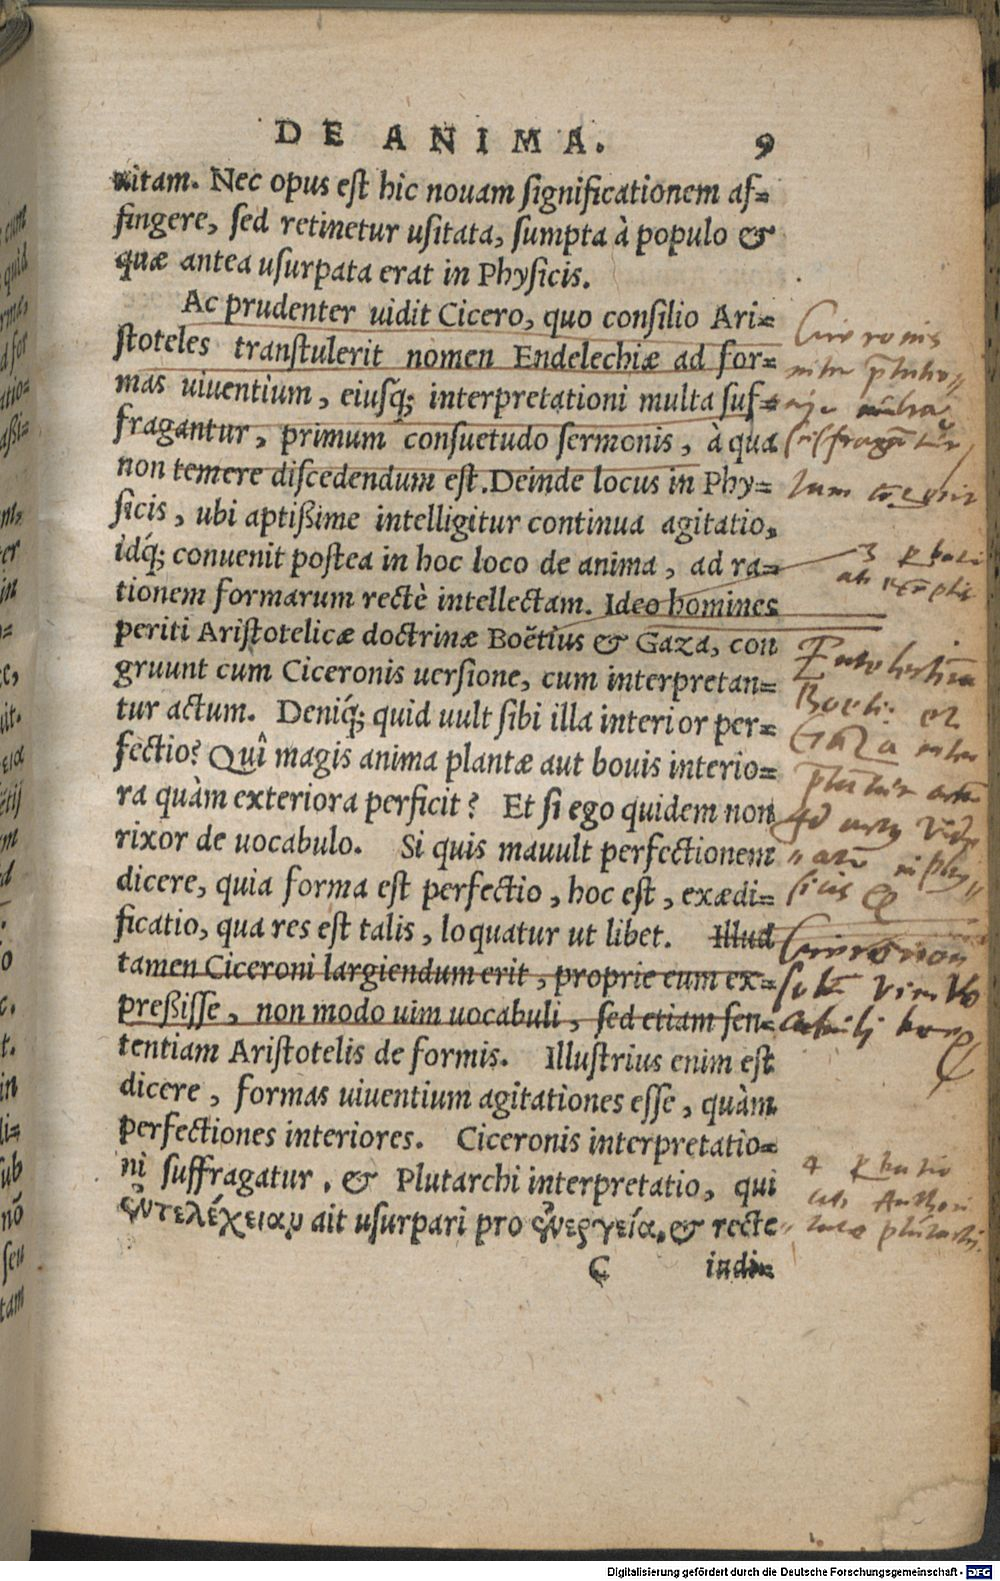 DE ANIMA. 9
uitam. Nec opus est hic nouam significationem af-
fingere, sed retinetur usitata, sumpta à populo &
quæ antea usurpata erat in Physicis.
Ac prudenter uidit Cicero, quo consilio Ari-
stoteles transtulerit nomen Endelechiæ ad for-
mas uiuentium, eiusq́; interpretationi multa suf-
fragantur, primum consuetudo sermonis, à qua
non temere discedendum est. Deinde locus in Phy-
sicis, ubi aptißime intelligitur continua agitatio,
idq́; conuenit postea in hoc loco de anima, ad ra-
tionem formarum rectè intellectam. Ideo homines
periti Aristotelicæ doctrinæ Boëtius & Gaza, con
gruunt cum Ciceronis uersione, cum interpretan-
tur actum. Deniq́; quid uult sibi illa interior per-
fectio? Quî magis anima plantæ aut bouis interio-
ra quàm exteriora perficit? Et si ego quidem non
rixor de uocabulo. Si quis mauult perfectionem
dicere, quia forma est perfectio, hoc est, exædi-
ficatio, qua res est talis, loquatur ut libet. Illud
tamen Ciceroni largiendum erit, proprie eum ex-
preßisse, non modo uim uocabuli, sed etiam sen-
tentiam Aristotelis de formis. Illustrius enim est
dicere, formas uiuentium agitationes esse, quàm
perfectiones interiores. Ciceronis interpretatio-
ni suffragatur, & Plutarchi interpretatio, qui
ἐντελέχειαν ait usurpari pro ἐνεργεία, & recte
C iudi-
Ciceronis
multa
suffragantur
3
Boetii et
Gaza
4
Digitalisierung gefördert durch die Deutsche Forschungsgemeinschaft - DFG